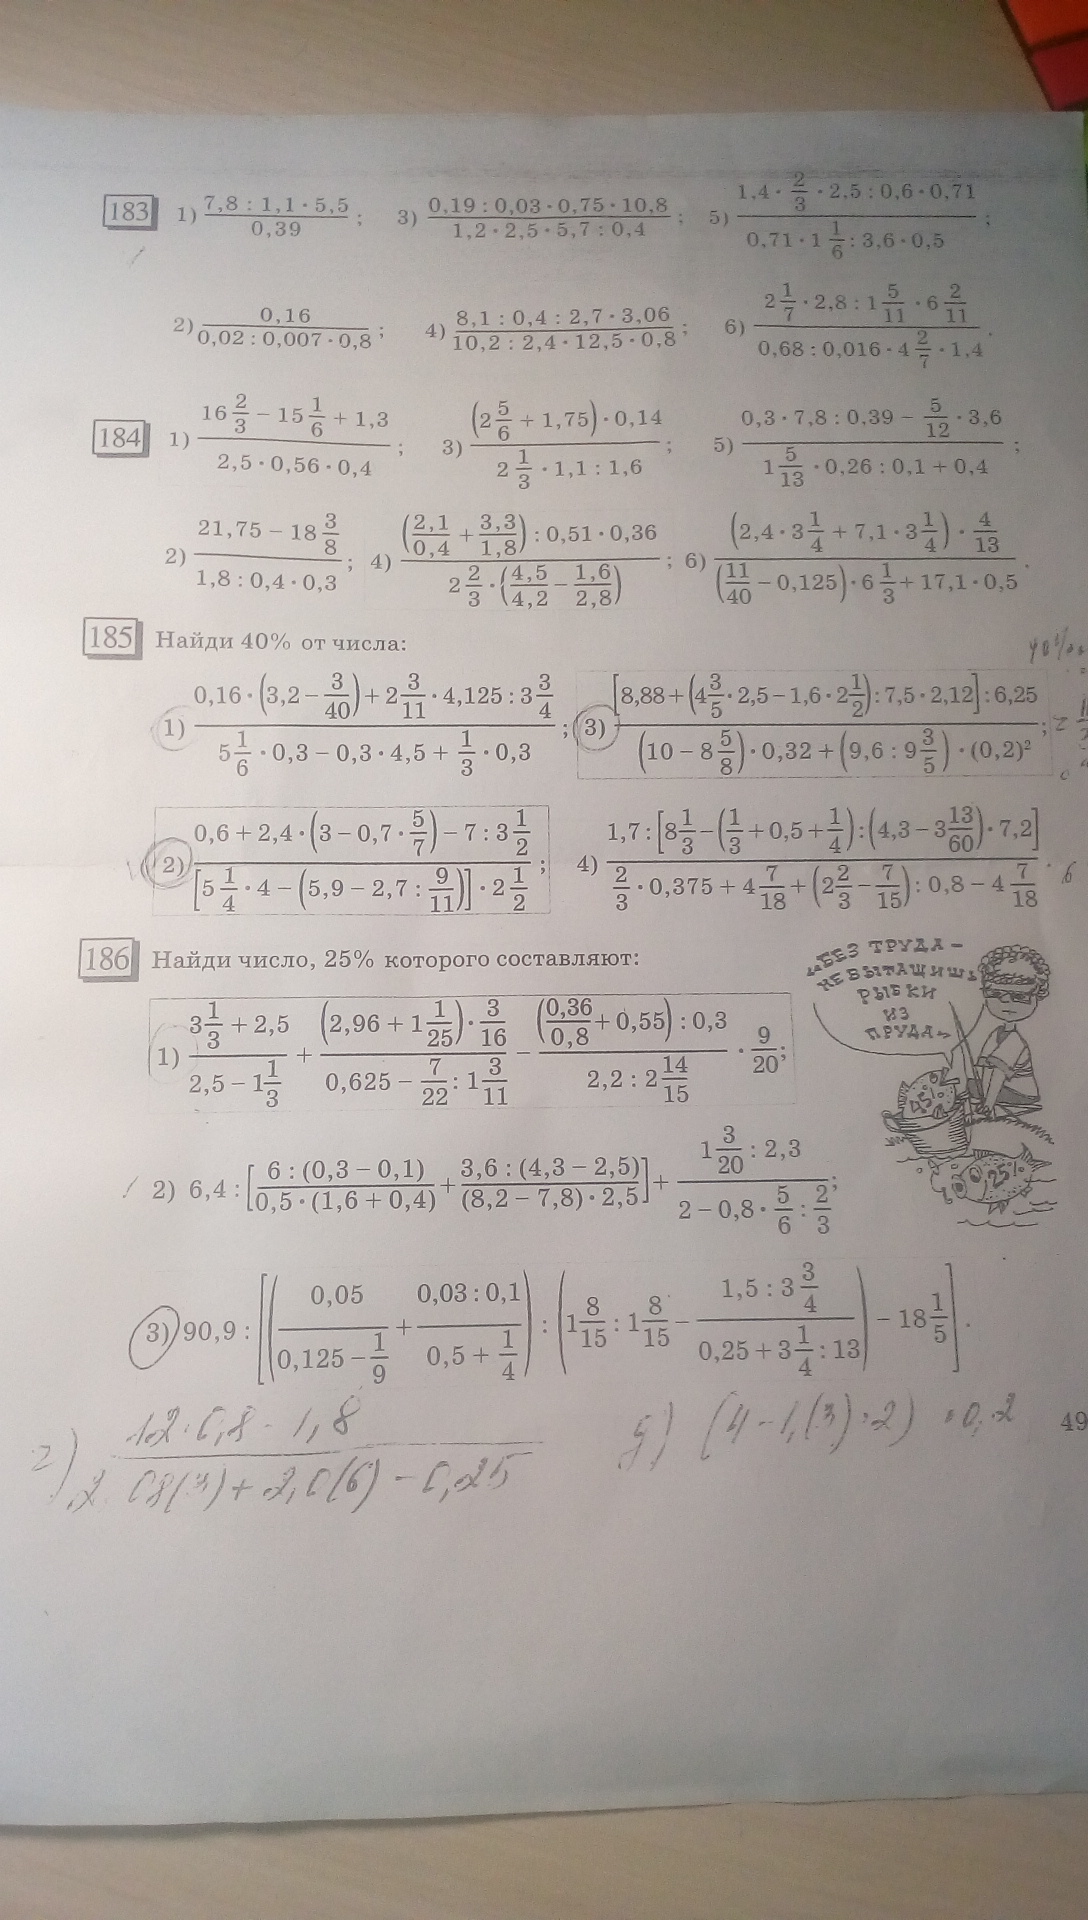 183 1) (7,8 : 1,1 · 5,5)/(0,39) ; 3) (0,19 : 0,03 · 0,75 · 10,8)/(1,2 · 2,5 · 5,7 : 0,4) ; 5) (1,4 · 2/3 · 2,5 : 0,6 · 0,71)/(0,71 · 1 1/6 : 3,6 · 0,5) ;
2) (0,16)/(0,02 : 0,007 · 0,8) ; 4) (8,1 : 0,4 : 2,7 · 3,06)/(10,2 : 2,4 · 12,5 · 0,8) ; 6) (2 1/7 · 2,8 : 1 5/11 · 6 2/11)/(0,68 : 0,016 · 4 2/7 · 1,4) .
184 1) (16 2/3 − 15 1/6 + 1,3)/(2,5 · 0,56 · 0,4) ; 3) ((2 5/6 + 1,75) · 0,14)/(2 1/3 · 1,1 : 1,6) ; 5) (0,3 · 7,8 : 0,39 − 5/12 · 3,6)/(1 5/13 · 0,26 : 0,1 + 0,4) ;
2) (21,75 − 18 3/8)/(1,8 : 0,4 · 0,3) ; 4) ((2,1/0,4 + 3,3/1,8) : 0,51 · 0,36)/(2 2/3 · (4,5/4,2 − 1,6/2,8)) ; 6) ((2,4 · 3 1/4 + 7,1 · 3 1/4) · 4/13)/((11/40 − 0,125) · 6 1/3 + 17,1 · 0,5) .
185 Найди 40% от числа:
1) (0,16 · (3,2 − 3/40) + 2 3/11 · 4,125 : 3 3/4)/(5 1/6 · 0,3 − 0,3 · 4,5 + 1/3 · 0,3) ; 3) ([8,88 + (4 3/5 · 2,5 − 1,6 · 2 1/2) : 7,5 · 2,12] : 6,25)/((10 − 8 5/8) · 0,32 + (9,6 : 9 3/5) · (0,2)²) ;
2) (0,6 + 2,4 · (3 − 0,7 · 5/7) − 7 : 3 1/2)/([5 1/4 · 4 − (5,9 − 2,7 : 9/11)] · 2 1/2) ; 4) (1,7 : [8 1/3 − (1/3 + 0,5 + 1/4) : (4,3 − 3 13/60) · 7,2])/(2/3 · 0,375 + 4 7/18 + (2 2/3 − 7/15) : 0,8 − 4 7/18) .
186 Найди число, 25% которого составляют:
„БЕЗ ТРУДА –
НЕ ВЫТАЩИШЬ
РЫБКИ
ИЗ
ПРУДА"
1) (3 1/3 + 2,5)/(2,5 − 1 1/3) + ((2,96 + 1 1/25) · 3/16)/(0,625 − 7/22 : 1 3/11) − ((0,36/0,8 + 0,55) : 0,3)/(2,2 : 2 14/15) · 9/20 ;
45%
2) 6,4 : [(6 : (0,3 − 0,1))/(0,5 · (1,6 + 0,4)) + (3,6 : (4,3 − 2,5))/((8,2 − 7,8) · 2,5)] + (1 3/20 : 2,3)/(2 − 0,8 · 5/6 : 2/3) ;
25%
3) 90,9 : [((0,05)/(0,125 − 1/9) + (0,03 : 0,1)/(0,5 + 1/4)) : (1 8/15 : 1 8/15 − (1,5 : 3 3/4)/(0,25 + 3 1/4 : 13)) − 18 1/5] .
49
д) (4 − 1,(3) · 2) · 0,2